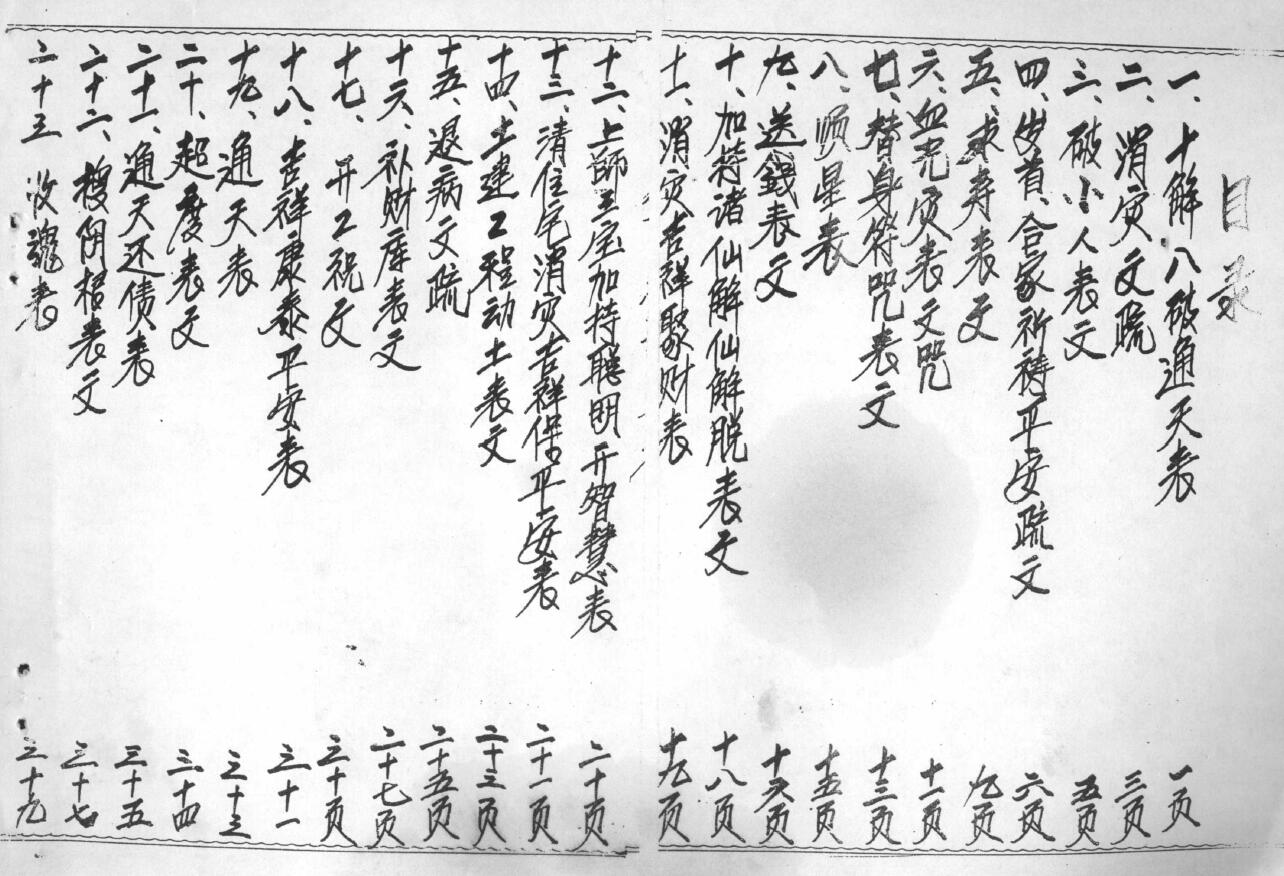 目录
一、十解八破通天表 一页
二、消灾文疏 三页
三、破小人表文 五页
四、安首、合家祈祷平安疏文 六页
五、求寿表文 九页
六、血光灾表文咒 十一页
七、替身符咒表文 十三页
八、顺星表 十五页
九、送錢表文 十六页
十、加持诸仙解仙解脱表文 十八页
十一、消灾吉祥聚财表 十九页
十二、上師三宝加持聪明开智慧表 二十页
十三、清住宅消灾吉祥保平安表 二十一页
十四、土建工程动土表文 二十三页
十五、退病文疏 二十五页
十六、补财库表文 二十七页
十七、开工祝文 三十页
十八、吉祥康泰平安表 三十一
十九、通天表 三十三
二十、超度表文 三十四
二十一、通天还债表 三十五
二十二、拔阴根表文 三十七
二十三 收魂表 三十九